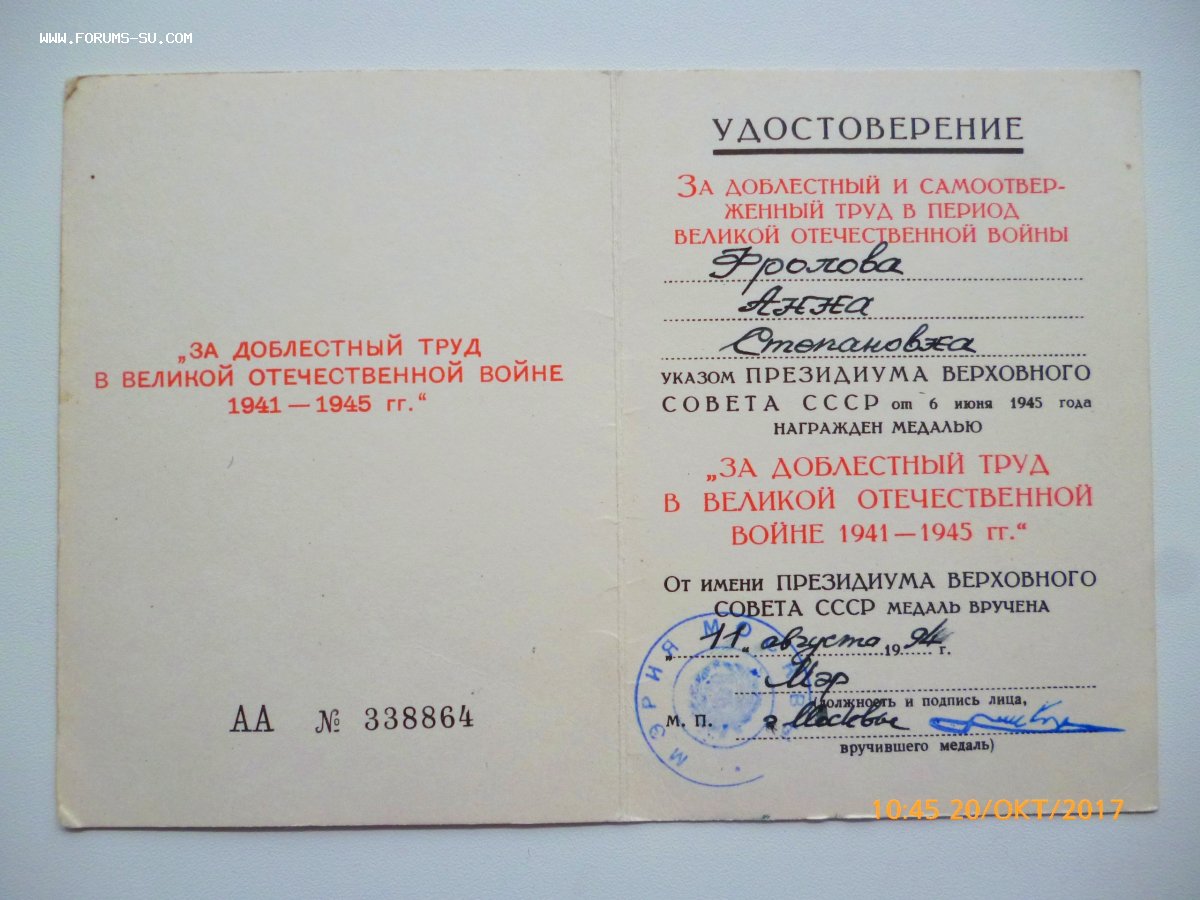 WWW.FORUMS-SU.COM
„ЗА ДОБЛЕСТНЫЙ ТРУД
В ВЕЛИКОЙ ОТЕЧЕСТВЕННОЙ ВОЙНЕ
1941 — 1945 гг.“
АА № 338864
УДОСТОВЕРЕНИЕ
ЗА ДОБЛЕСТНЫЙ И САМООТВЕР-
ЖЕННЫЙ ТРУД В ПЕРИОД
ВЕЛИКОЙ ОТЕЧЕСТВЕННОЙ ВОЙНЫ
Фролова
Анна
Степановна
УКАЗОМ ПРЕЗИДИУМА ВЕРХОВНОГО
СОВЕТА СССР от 6 июня 1945 года
НАГРАЖДЕН МЕДАЛЬЮ
„ЗА ДОБЛЕСТНЫЙ ТРУД
В ВЕЛИКОЙ ОТЕЧЕСТВЕННОЙ
ВОЙНЕ 1941 — 1945 гг.“
ОТ ИМЕНИ ПРЕЗИДИУМА ВЕРХОВНОГО
СОВЕТА СССР МЕДАЛЬ ВРУЧЕНА
„11„ августа 1994 г.
Мэр
(должность и подпись лица,
М. П. г Москвы
вручившего медаль)
МЭРИЯ МОСКВЫ
10:45 20/ОКТ/2017